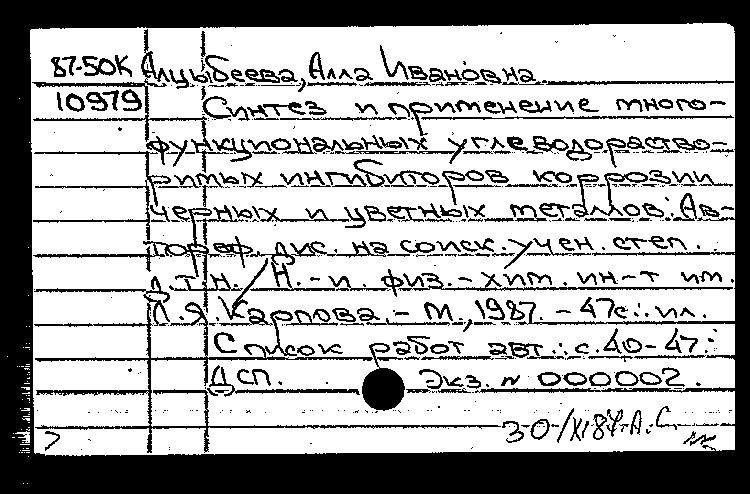 87-50К Алцыбеева, Алла Ивановна
10979 Синтез и применение много-
функциональных углеводораство-
римых ингибиторов коррозии
черных и цветных металлов: Ав-
тореф. дис. на соиск. учен. степ.
д.т.н. / Н.-и. физ.-хим. ин-т им.
Л.Я. Карпова. - М., 1987. - 47с.: ил.
Список работ авт.: с. 40-47.
ДСП. Экз. № 000002.
30/XI87-А.С.